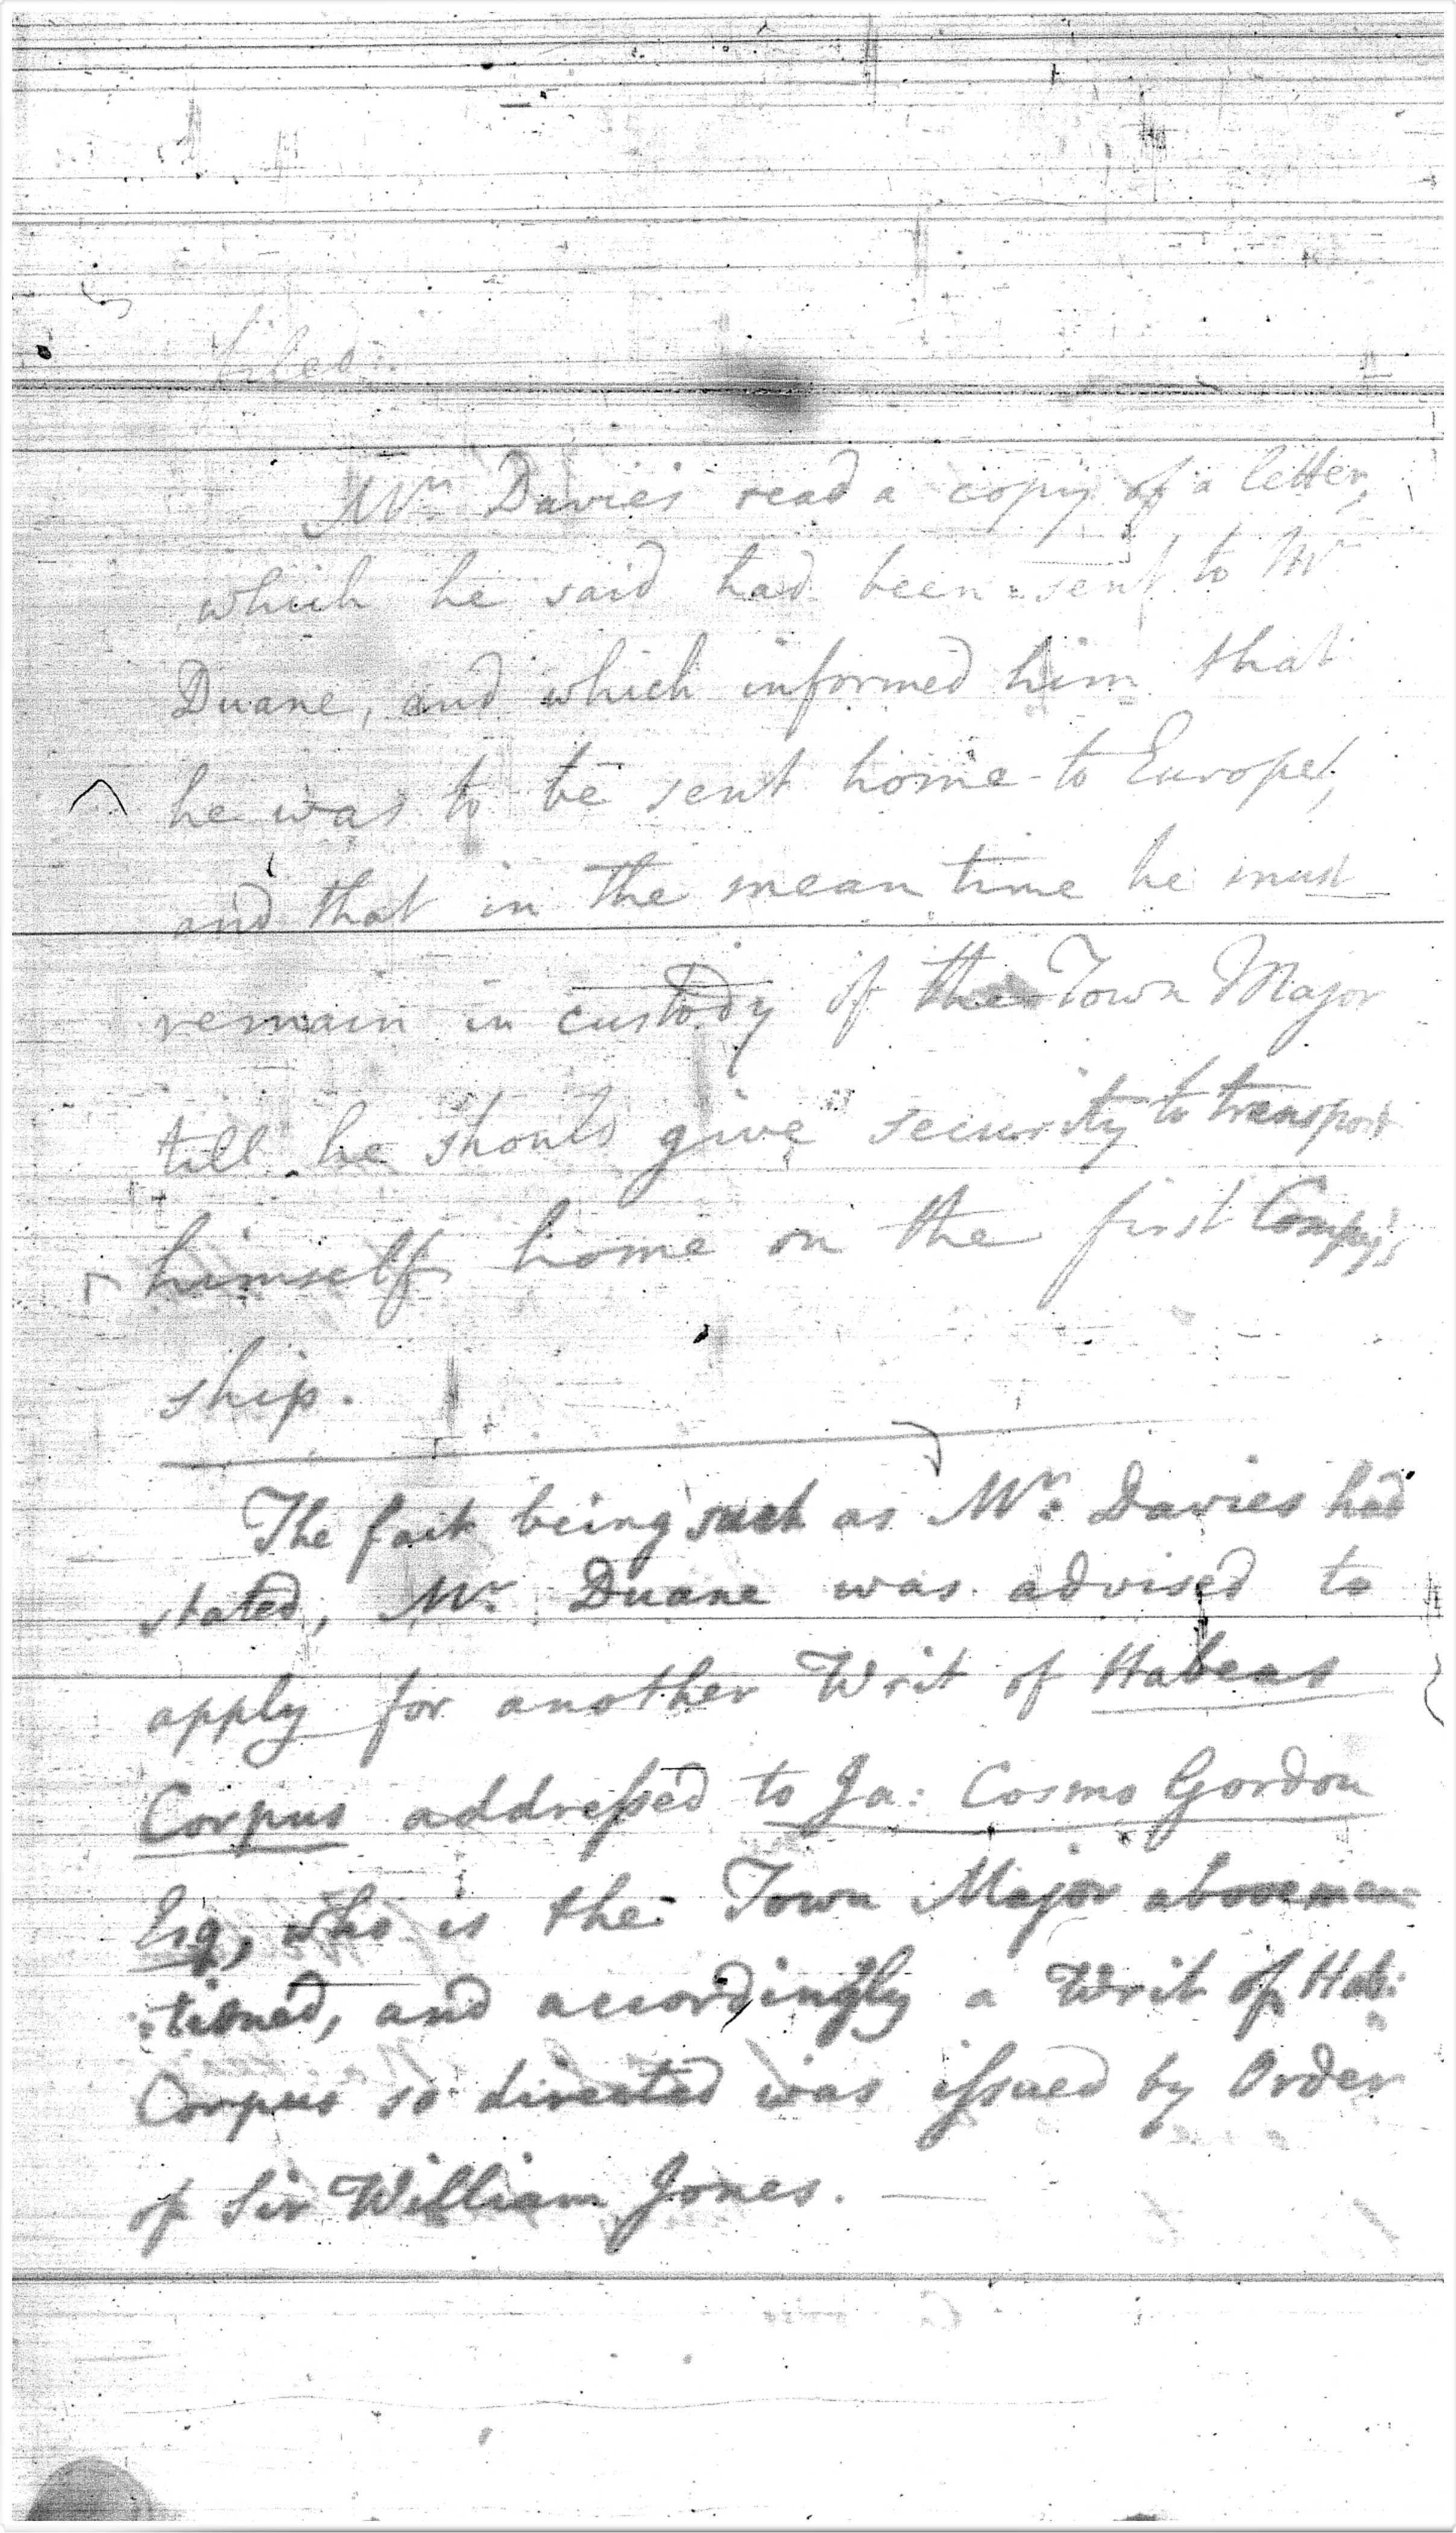 filed.
Mr. Davies read a copy of a letter,
which he said had been sent to Mr
Duane, and which informed him that
he was to be sent home to Europe,
and that in the mean time he must
remain in custody of the Town Major
till he should give security to transport
himself home on the first Compy's
ship.
The fact being such as Mr. Davies had
stated, Mr. Duane was advised to
apply for another Writ of Habeas
Corpus addressed to Ja: Cosmo Gordon
Esq, who is the Town Major abovemen-
:tioned, and accordingly a Writ of Hab:
Corpus so directed was issued by Order
of Sir William Jones. —